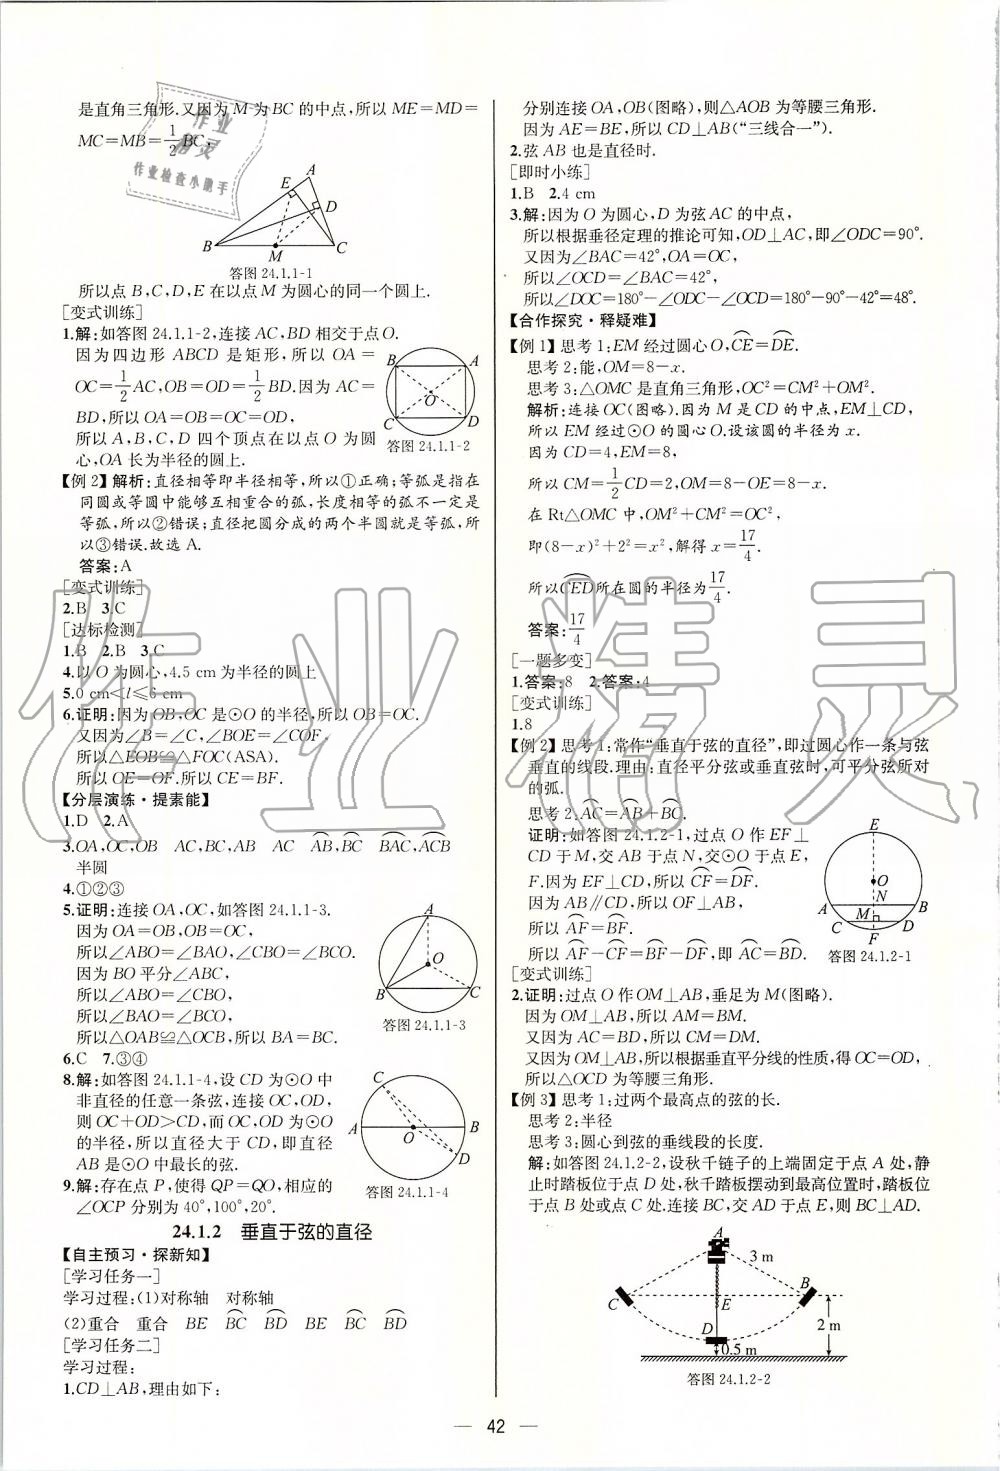 是直角三角形.又因为M为BC的中点,所以ME=MD=
MC=MB=1/2BC,
作业
精灵
作业检查小助手
A
E
D
B
M
C
答图24.1.1-1
所以点B,C,D,E在以点M为圆心的同一个圆上.
[变式训练]
1.解:如答图24.1.1-2,连接AC,BD相交于点O.
因为四边形ABCD是矩形,所以OA=
OC=1/2AC,OB=OD=1/2BD.因为AC=
BD,所以OA=OB=OC=OD,
所以A,B,C,D四个顶点在以点O为圆
心,OA长为半径的圆上.
B
A
O
C
D
答图24.1.1-2
【例2】解析:直径相等即半径相等,所以①正确;等弧是指在
同圆或等圆中能够互相重合的弧,长度相等的弧不一定是
等弧,所以②错误;直径把圆分成的两个半圆就是等弧,所
以③错误.故选A.
答案:A
[变式训练]
2.B 3.C
[达标检测]
1.B 2.B 3.C
4.以O为圆心,4.5 cm为半径的圆上
5.0 cm<l≤6 cm
6.证明:因为OB,OC是⊙O的半径,所以OB=OC.
又因为∠B=∠C,∠BOE=∠COF,
所以△EOB≌△FOC(ASA).
所以OE=OF.所以CE=BF.
【分层演练·提素能】
1.D 2.A
3.OA,OC,OB AC,BC,AB AC A͡B,B͡C B͡AC,A͡CB
半圆
4.①②③
5.证明:连接OA,OC,如答图24.1.1-3.
因为OA=OB,OB=OC,
所以∠ABO=∠BAO,∠CBO=∠BCO.
因为BO平分∠ABC,
所以∠ABO=∠CBO,
所以∠BAO=∠BCO,
所以△OAB≌△OCB,所以BA=BC.
A
O
B
C
答图24.1.1-3
6.C 7.③④
8.解:如答图24.1.1-4,设CD为⊙O中
非直径的任意一条弦,连接OC,OD,
则OC+OD>CD,而OC,OD为⊙O
的半径,所以直径大于CD,即直径
AB是⊙O中最长的弦.
C
A
O
B
D
答图24.1.1-4
9.解:存在点P,使得QP=QO,相应的
∠OCP分别为40°,100°,20°.
24.1.2 垂直于弦的直径
【自主预习·探新知】
[学习任务一]
学习过程:(1)对称轴 对称轴
(2)重合 重合 BE B͡C B͡D BE B͡C B͡D
[学习任务二]
学习过程:
1.CD⊥AB,理由如下:
分别连接OA,OB(图略),则△AOB为等腰三角形.
因为AE=BE,所以CD⊥AB(“三线合一”).
2.弦AB也是直径时.
[即时小练]
1.B 2.4 cm
3.解:因为O为圆心,D为弦AC的中点,
所以根据垂径定理的推论可知,OD⊥AC,即∠ODC=90°.
又因为∠BAC=42°,OA=OC,
所以∠OCD=∠BAC=42°,
所以∠DOC=180°-∠ODC-∠OCD=180°-90°-42°=48°.
【合作探究·释疑难】
【例1】思考1:EM经过圆心O,C͡E=D͡E.
思考2:能,OM=8-x.
思考3:△OMC是直角三角形,OC²=CM²+OM².
解析:连接OC(图略).因为M是CD的中点,EM⊥CD,
所以EM经过⊙O的圆心O.设该圆的半径为x.
因为CD=4,EM=8,
所以CM=1/2CD=2,OM=8-OE=8-x.
在Rt△OMC中,OM²+CM²=OC²,
即(8-x)²+2²=x²,解得x=17/4.
所以C͡ED所在圆的半径为17/4.
答案:17/4
[一题多变]
1.答案:8 2.答案:4
[变式训练]
1.8
【例2】思考1:常作“垂直于弦的直径”,即过圆心作一条与弦
垂直的线段.理由:直径平分弦或垂直弦时,可平分弦所对
的弧.
思考2.A͡C=A͡B+B͡C.
证明:如答图24.1.2-1,过点O作EF⊥
CD于M,交AB于点N,交⊙O于点E,
F.因为EF⊥CD,所以C͡F=D͡F.
因为AB∥CD,所以OF⊥AB,
所以A͡F=B͡F.
所以A͡F-C͡F=B͡F-D͡F,即A͡C=B͡D.
E
O
N
A
B
M
C
D
F
答图24.1.2-1
[变式训练]
2.证明:过点O作OM⊥AB,垂足为M(图略).
因为OM⊥AB,所以AM=BM.
又因为AC=BD,所以CM=DM.
又因为OM⊥AB,所以根据垂直平分线的性质,得OC=OD,
所以△OCD为等腰三角形.
【例3】思考1:过两个最高点的弦的长.
思考2:半径
思考3:圆心到弦的垂线段的长度.
解:如答图24.1.2-2,设秋千链子的上端固定于点A处,静
止时踏板位于点D处,秋千踏板摆动到最高位置时,踏板位
于点B处或点C处.连接BC,交AD于点E,则BC⊥AD.
A
3 m
B
C
E
2 m
D
0.5 m
答图24.1.2-2
作业精灵
— 42 —